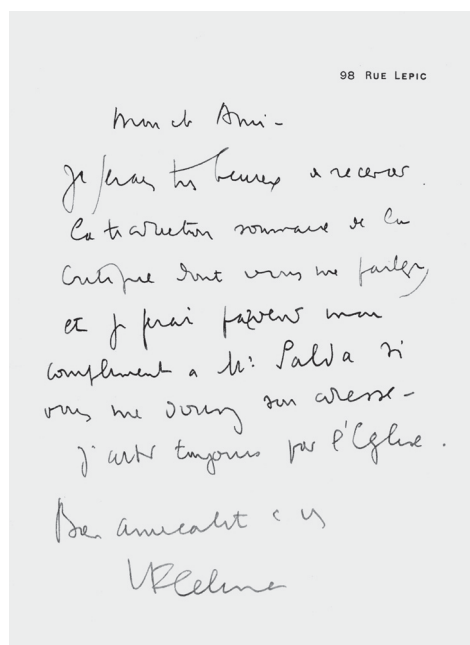 98 RUE LEPIC
Mon ch Ami -
Je serais très heureux de recevoir
la traduction sommaire de la
Critique dont vous me parlez,
et je ferai parvenir mon
compliment a Mr: Salda si
vous me donnez son adresse -
toujours par l'Eglise.
Bien amicalt
LFCeline